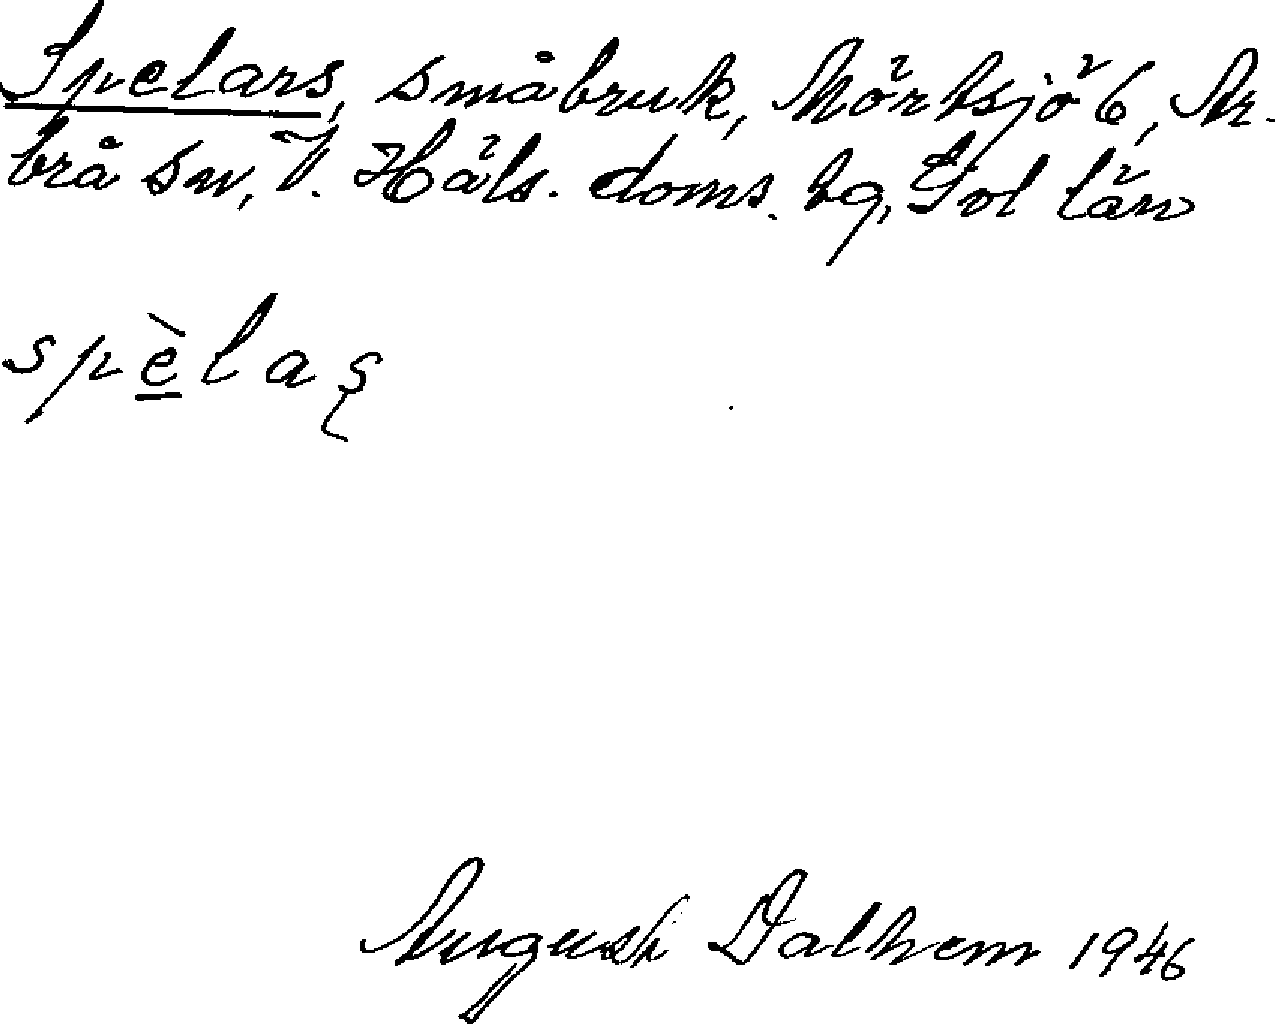 Spelars, småbruk, Mörtsjö 6, Ar-
brå sn, V. Häls. doms. tg, Gvl län
spèlaş
August Dalhem 1946